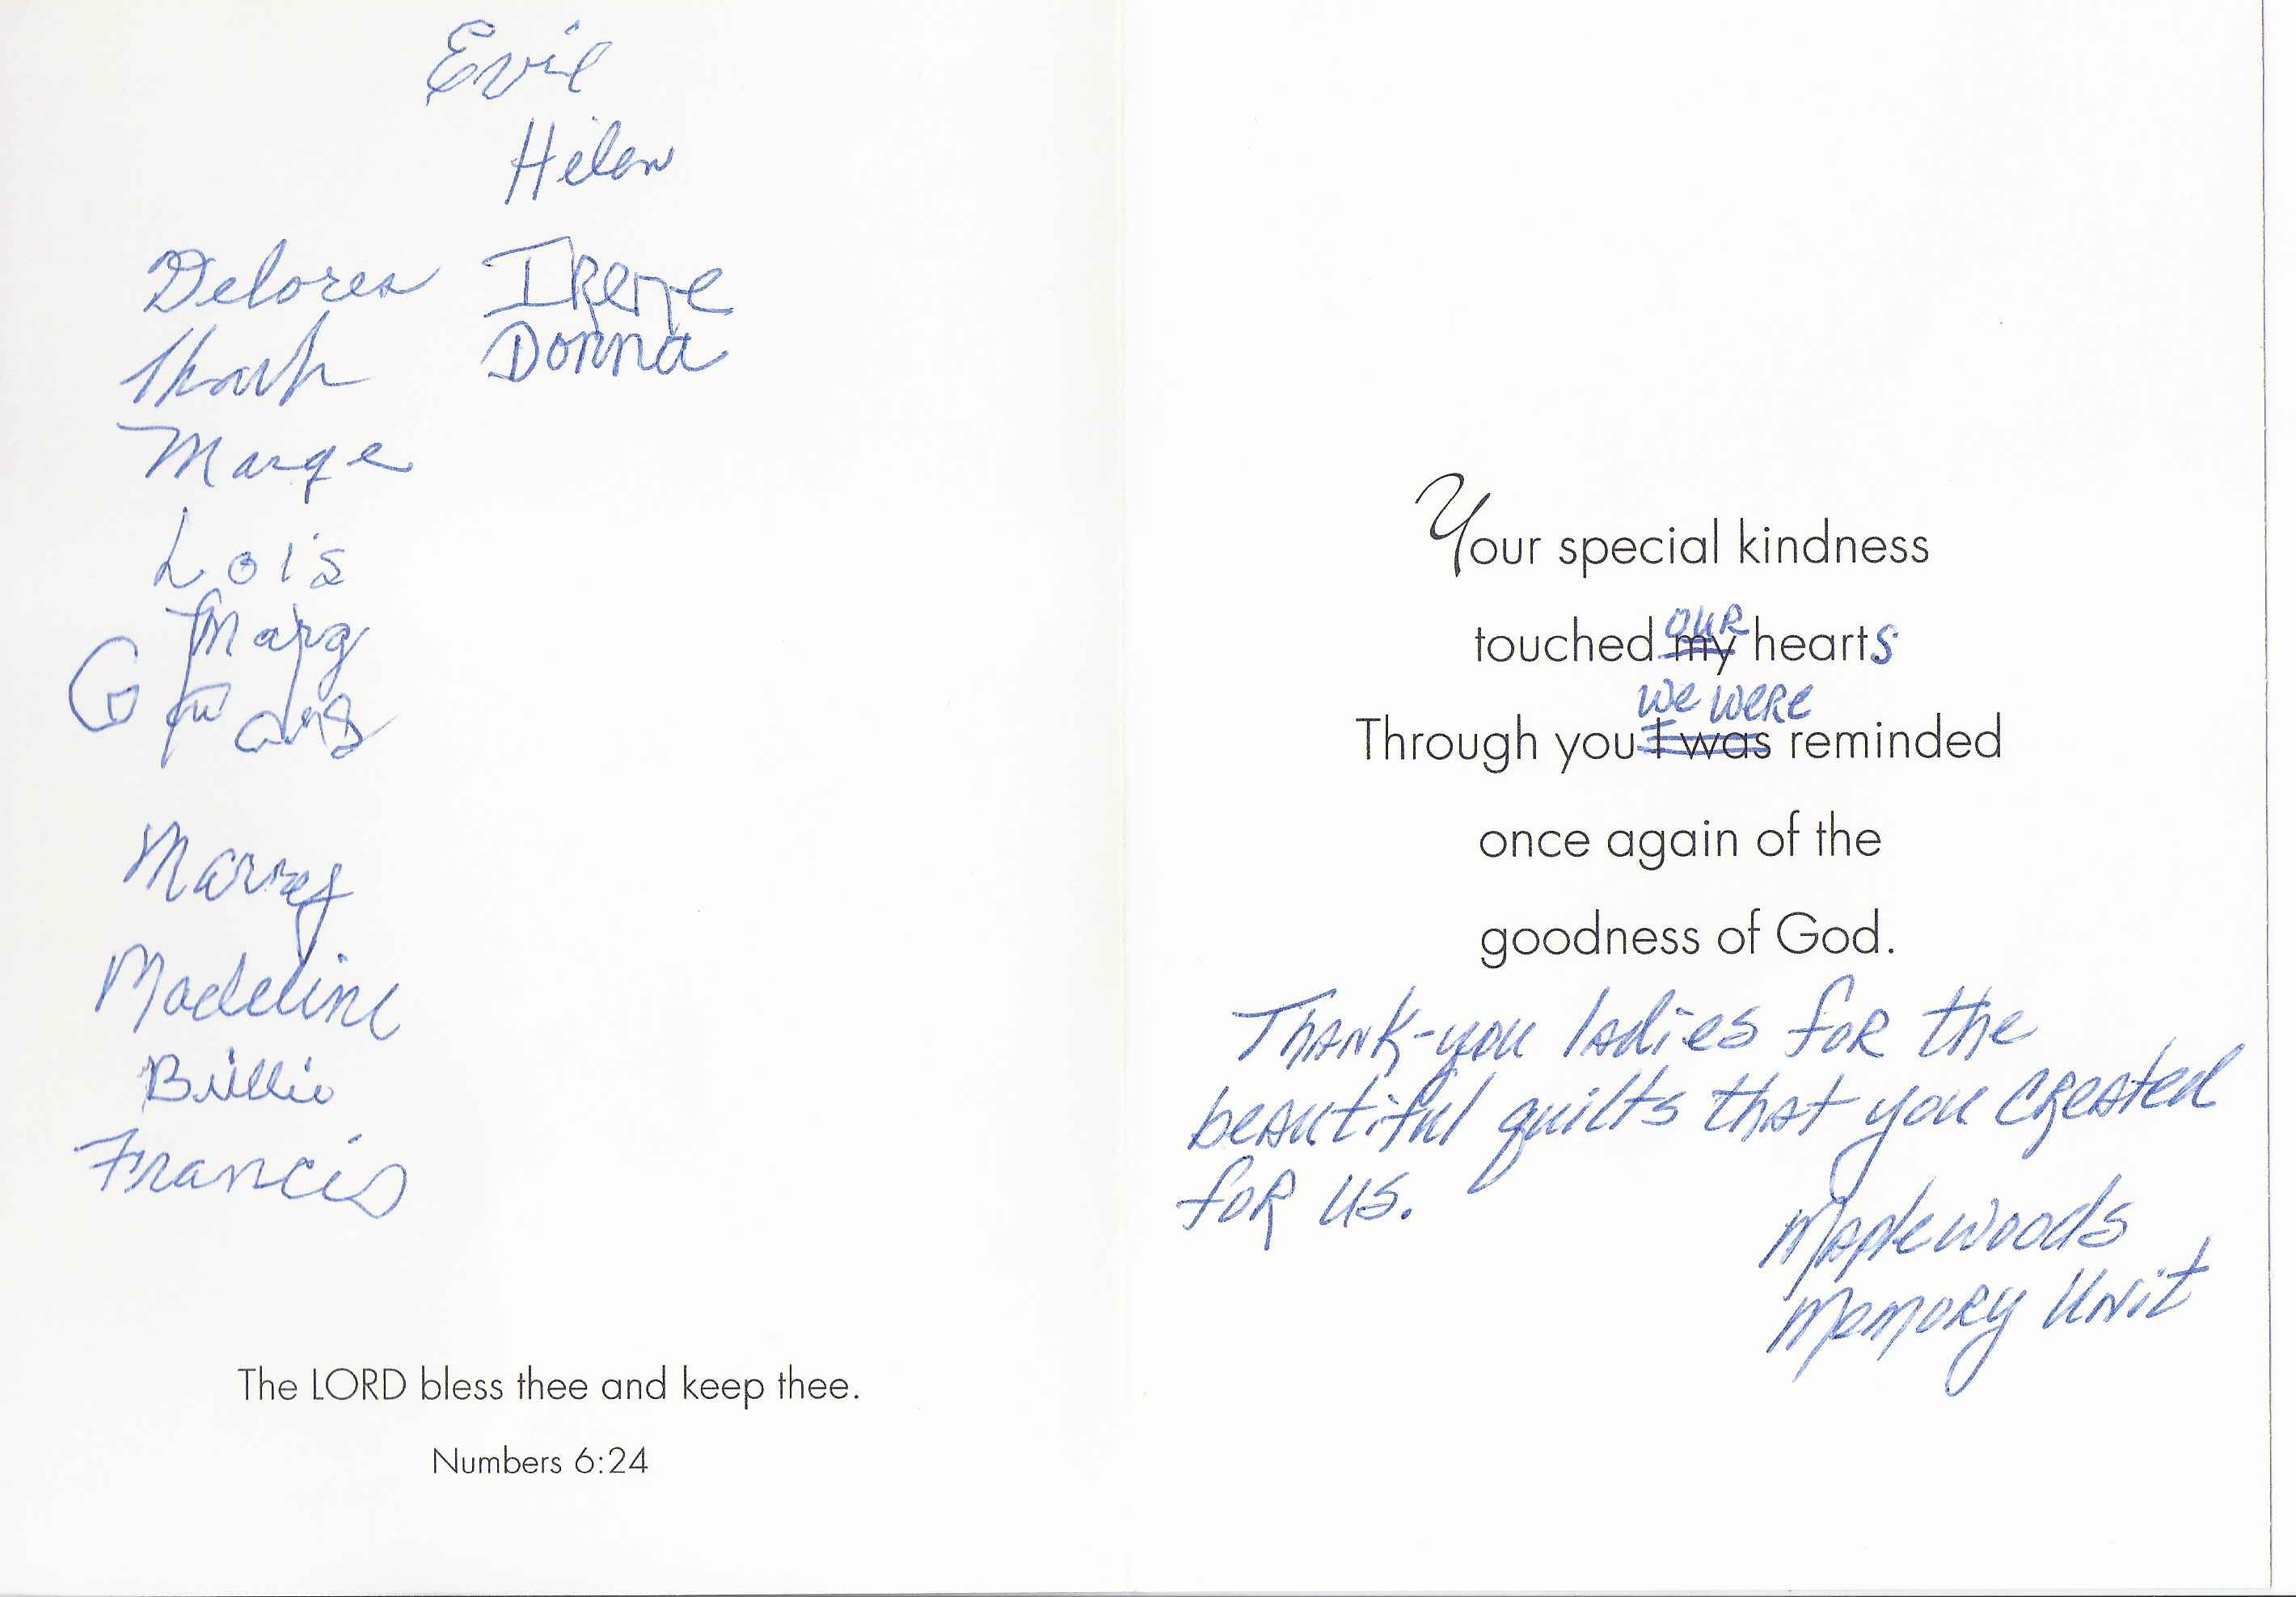 Helen
Delores Irene
Donna
Marge
Lois
Marg
G
Madeline
Billie
Francis
The LORD bless thee and keep thee.
Numbers 6:24
Your special kindness
touched my our hearts
Through you I was we were reminded
once again of the
goodness of God.
Thank-you ladies for the
beautiful quilts that you created
for us.
Maplewoods
Memory Unit